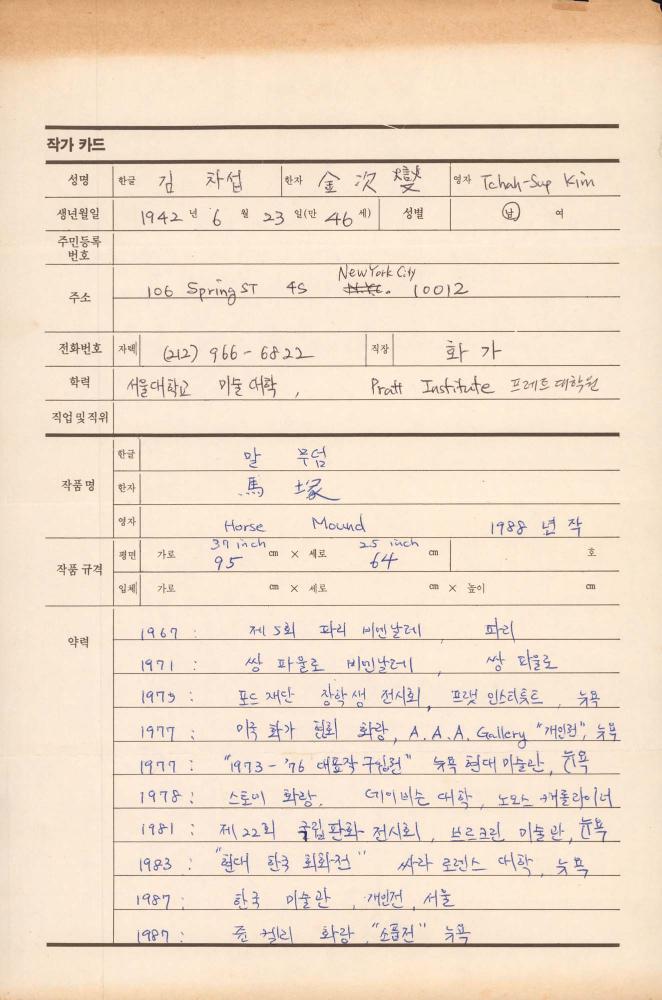 작가 카드
성명 한글 김 차섭 한자 金 次 燮 영자 Tchah-Sup Kim
생년월일 1942 년 6 월 23 일(만 46 세) 성별 남 여
주민등록
번호
New York City
주소 106 Spring ST 4S N.Y.C. 10012
전화번호 자택 (212) 966-6822 직장 화 가
학력 서울대학교 미술대학, Pratt Institute 프레트 대학원
직업 및 직위
한글 말 무덤
작품명 한자 馬 塚
영자 Horse Mound 1988 년 작
37 inch 25 inch
작품 규격 평면 가로 95 cm × 세로 64 cm 호
입체 가로 cm × 세로 cm × 높이 cm
약력
1967 : 제 5회 파리 비엔날레, 파리
1971 : 쌍 파울로 비엔날레, 쌍 파울로
1975 : 포드 재단 장학생 전시회, 프랫 인스티튯트, 뉴욕
1977 : 미국 화가 협회 화랑, A.A.A. Gallery "개인전", 뉴욕
1977 : "1973-'76 대표작 구입전" 뉴욕 현대 미술관, 뉴욕
1978 : 스토비 화랑, 데이비슨 대학, 노오스 캐롤라이너
1981 : 제 22회 국립 판화 전시회, 브르크린 미술관, 뉴욕
1983 : "현대 한국 회화전" 싸라 로렌스 대학, 뉴욕
1987 : 한국 미술관, 개인전, 서울
1987 : 쥰 켈리 화랑, "소품전" 뉴욕